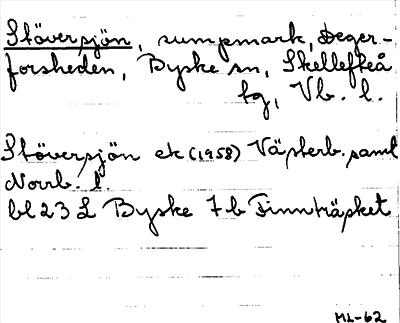 Stöversjön, sumpmark, Deger-
forsheden, Byske sn, Skellefteå
tg, Vb. l.
Stöversjön ek (1958) Västerb. saml
Norrb. l.
bl 23 L Byske 7b Finnträsket
ML-62